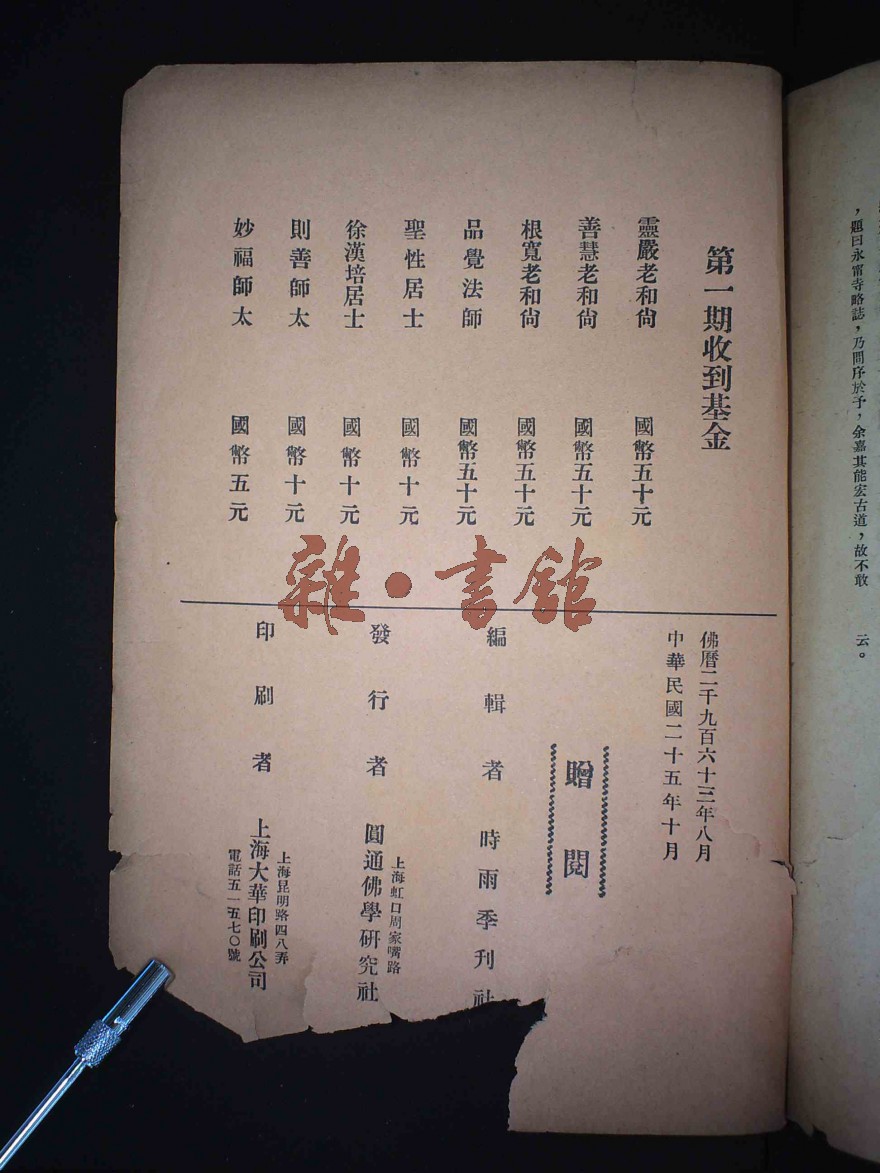 第一期收到基金
靈嚴老和尙 國幣五十元
善慧老和尙 國幣五十元
根寬老和尙 國幣五十元
品覺法師 國幣五十元
聖性居士 國幣十元
徐漢培居士 國幣十元
則善師太 國幣十元
妙福師太 國幣五元
佛曆二千九百六十三年八月
中華民國二十五年十月
贈閱
編輯者 時雨季刊社
上海虹口周家嘴路
發行者 圓通佛學硏究社
上海昆明路四八弄
印刷者 上海大華印刷公司
電話五一五七〇號
雜·書館
，題曰永甯寺略誌，乃問序於予，余嘉其能宏古道，故不敢
云。